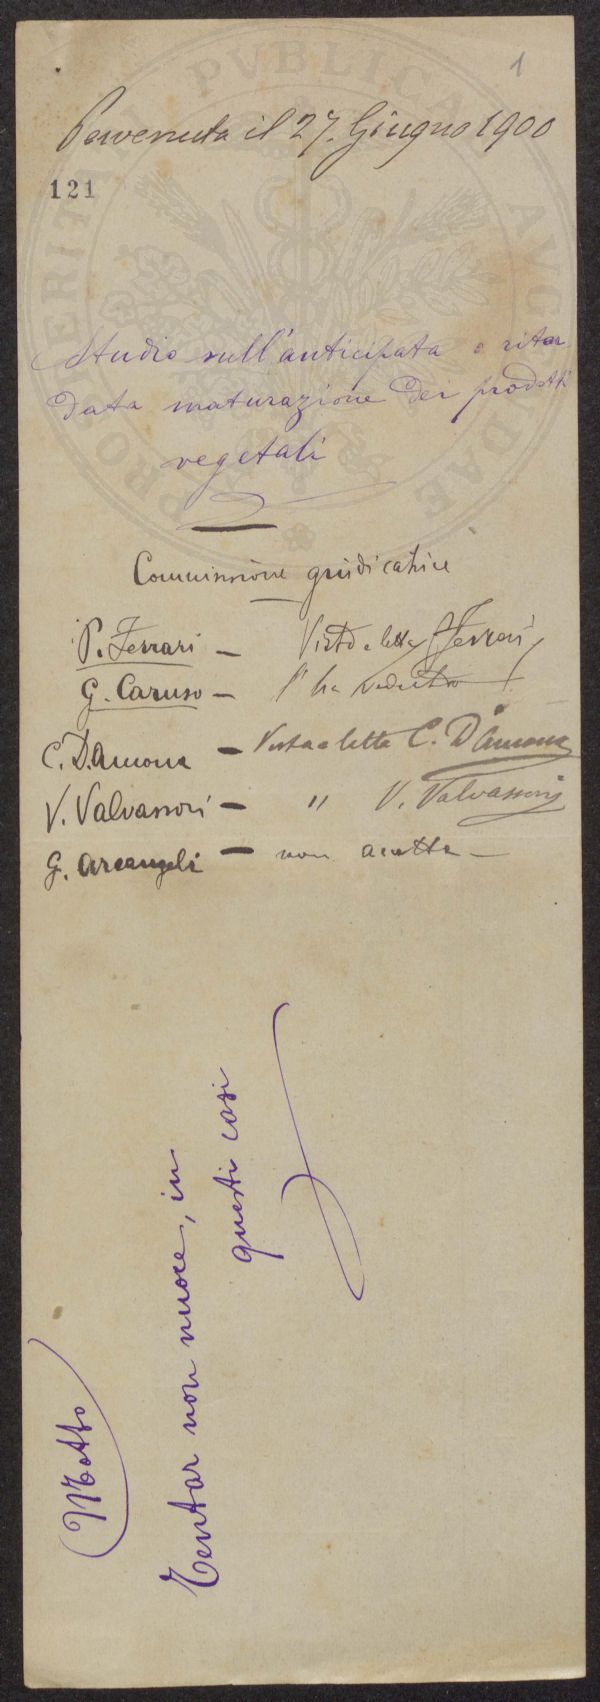 1
Pervenuta il 27. Giugno 1900
121
Studio sull'anticipata e ritar
data maturazione dei prodotti
vegetali
Commissione giudicatrice
P. Ferrari – Visto e letto PFerrari
G. Caruso – l'ha veduto
C. D'Ancona – Vista e letta C. D'Ancona
V. Valvassori – " V. Valvassori
G. Arcangeli – non accetta –
Motto
Tentar non nuoce, in
questi casi
PROSPERITATI PVBLICAE AVGENDAE